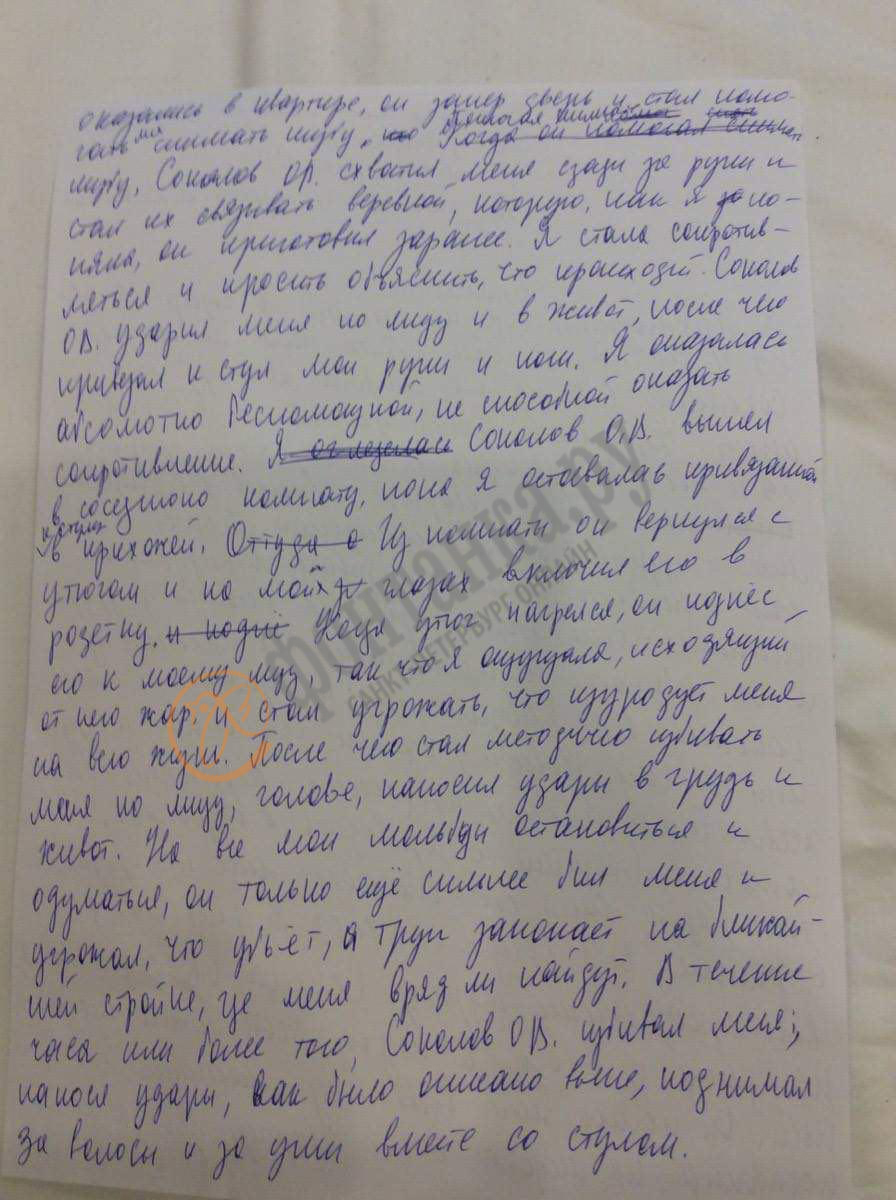 оказались в квартире, он запер дверь и стал помо-
гать мне снимать шубу, но Когда он помогал снимать
шубу, Соколов О.В. схватил меня сзади за руки и
стал их связывать веревкой, которую, как я по-
няла, он приготовил заранее. Я стала сопротив-
ляться и просить объяснить, что происходит. Соколов
О.В. ударил меня по лицу и в живот, после чего
привязал к стул мои руки и ноги. Я оказалась
абсолютно беспомощной, не способной оказать
сопротивление. Я Соколов О.В. вышел
в соседнюю комнату, пока я оставалась привязанной
к стулу
в прихожей. Оттуда с Из комнаты он вернулся с
утюгом и на моих глазах включил его в
розетку. и поднё Когда утюг нагрелся, он поднёс
его к моему лицу, так что я ощущала, исходящий
от него жар, и стал угрожать, что изуродует меня
на всю жизнь. После чего стал методично избивать
меня по лицу, голове, наносил удары в грудь и
живот. На все мои мольбы остановиться и
одуматься, он только ещё сильнее бил меня и
угрожал, что убьёт, а труп закопает на ближай-
шей стройке, где меня вряд ли найдут. В течение
часа или более того, Соколов О.В. избивал меня,
нанося удары, как было описано выше, поднимал
за волосы и за уши вместе со стулом.
фонтанка.ру
САНКТ-ПЕТЕРБУРГ ОНЛАЙН